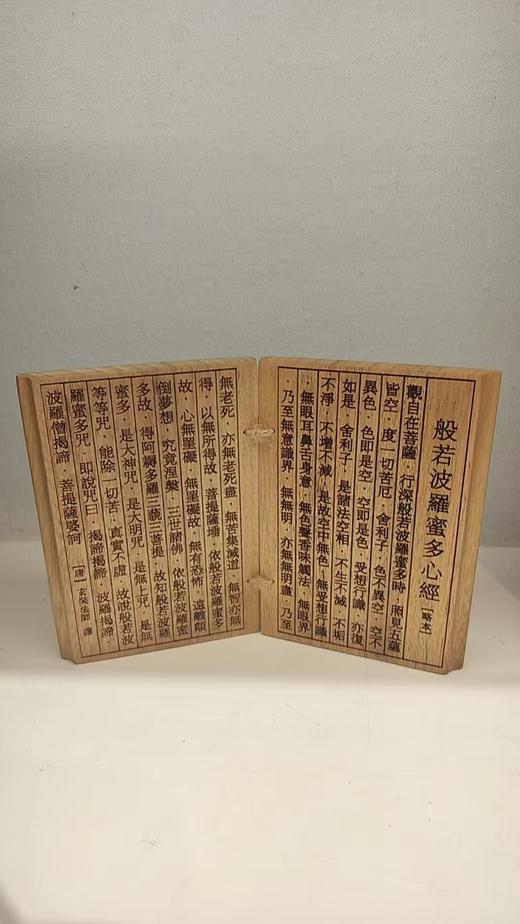 般若波羅蜜多心經 [略本]
觀自在菩薩．行深般若波羅蜜多時．照見五蘊
皆空．度一切苦厄．舍利子．色不異空．空不
異色．色即是空．空即是色．受想行識．亦復
如是．舍利子．是諸法空相．不生不滅．不垢
不淨．不增不減．是故空中無色．無受想行識
．無眼耳鼻舌身意．無色聲香味觸法．無眼界
．乃至無意識界．無無明．亦無無明盡．乃至
無老死．亦無老死盡．無苦集滅道．無智亦無
得．以無所得故．菩提薩埵．依般若波羅蜜多
故．心無罣礙．無罣礙故．無有恐怖．遠離顛
倒夢想．究竟涅槃．三世諸佛．依般若波羅蜜
多故．得阿耨多羅三藐三菩提．故知般若波羅
蜜多．是大神咒．是大明咒．是無上咒．是無
等等咒．能除一切苦．真實不虛．故說般若波
羅蜜多咒．即說咒曰．揭諦揭諦．波羅揭諦．
波羅僧揭諦．菩提薩婆訶
[唐] 玄奘法師 譯